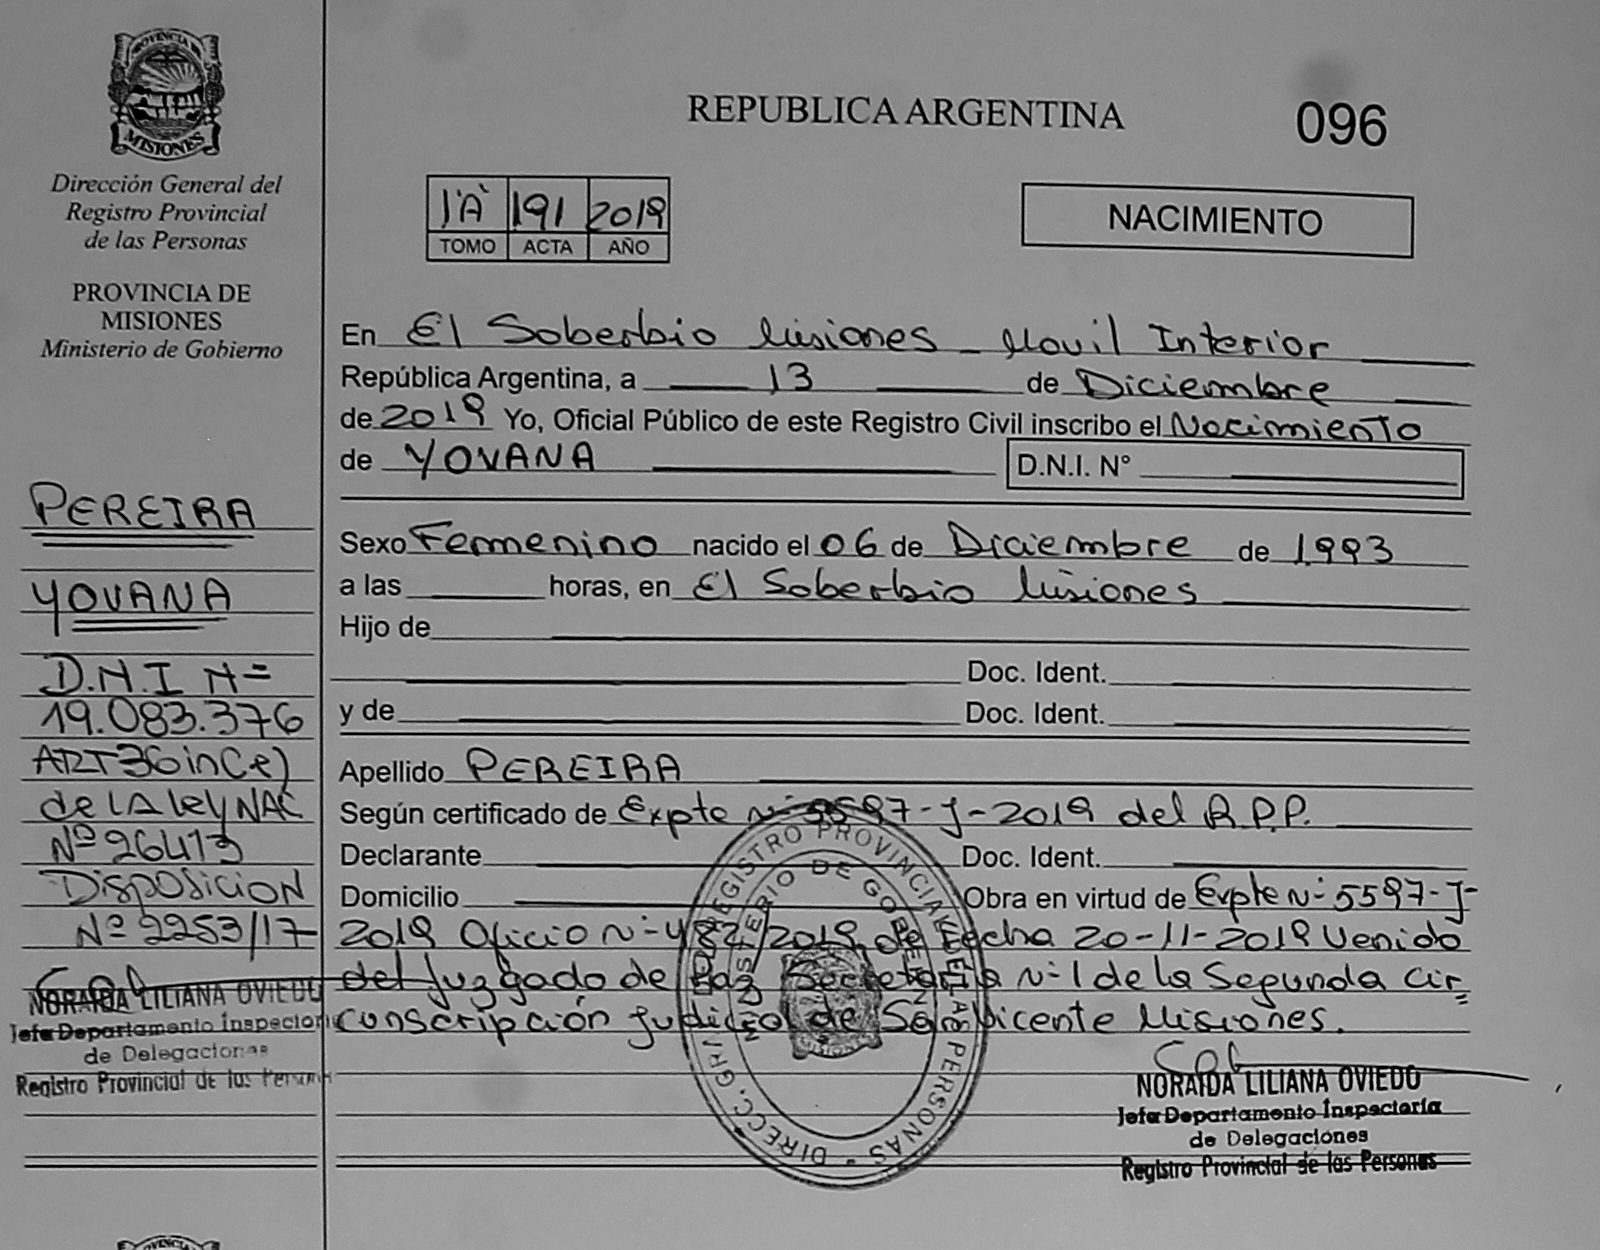 PROVINCIA DE
MISIONES
Dirección General del
Registro Provincial
de las Personas
PROVINCIA DE
MISIONES
Ministerio de Gobierno
PEREIRA
YOVANA
D.N.I Nº
19.083.376
ART36 inc e)
de LA ley NAC
Nº 26413
DISPOSICION
Nº 2253/17
NORAIDA LILIANA OVIEDO
Jefa Departamento Inspectoria
de Delegaciones
Registro Provincial de las Personas
REPUBLICA ARGENTINA
096
1'A' 191 2019
TOMO ACTA AÑO
NACIMIENTO
En El Soberbio Misiones - Movil Interior
República Argentina, a 13 de Diciembre
de 2019 Yo, Oficial Público de este Registro Civil inscribo el Nacimiento
de YOVANA D.N.I. N°
Sexo Femenino nacido el 06 de Diciembre de 1993
a las horas, en El Soberbio Misiones
Hijo de
Doc. Ident.
y de Doc. Ident.
Apellido PEREIRA
Según certificado de Expte Nº 5597-J-2019 del R.P.P.
Declarante Doc. Ident.
Domicilio Obra en virtud de Expte Nº 5597-J-
2019 Oficio Nº 482/2019 de Fecha 20-11-2019 Venido
del Juzgado de Paz Secretaria Nº 1 de la Segunda Cir=
conscripción Judicial de San Vicente Misiones.
DIRECC. GRAL. DEL REGISTRO PROVINCIAL DE LAS PERSONAS -
MINISTERIO DE GOBIERNO
MISIONES
NORAIDA LILIANA OVIEDO
Jefa Departamento Inspectoria
de Delegaciones
Registro Provincial de las Personas